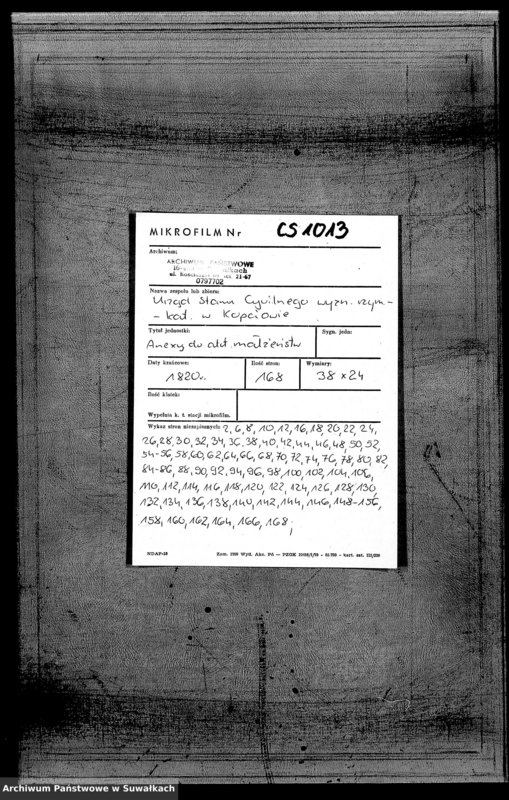 MIKROFILM Nr CS1013
Archiwum:
ARCHIWUM PAŃSTWOWE
0797702
Nazwa zespołu lub zbioru:
Urząd Stanu Cywilnego wyzn. rzym-
-kat. w Kopciowie
Tytuł jednostki:
Sygn. jedn:
Anexy do akt małżeństw
Daty krańcowe:
Ilość stron:
Wymiary:
1820r.
168
38 x 24
Ilość klatek:
Wypełnia k. t. stacji mikrofilm.
Wykaz stron niezapisanych: 2, 6, 8, 10, 12, 16, 18, 20, 22, 24,
26, 28, 30, 32, 34, 36, 38, 40, 42, 44, 46, 48, 50, 52,
54-56, 58, 60, 62, 64, 66, 68, 70, 72, 74, 76, 78, 80, 82,
84-86, 88, 90, 92, 94, 96, 98, 100, 102, 104, 106,
110, 112, 114, 116, 118, 120, 122, 124, 126, 128, 130,
132, 134, 136, 138, 140, 142, 144, 146, 148-156,
158, 160, 162, 164, 166, 168;
NDAP-18
Archiwum Państwowe w Suwałkach